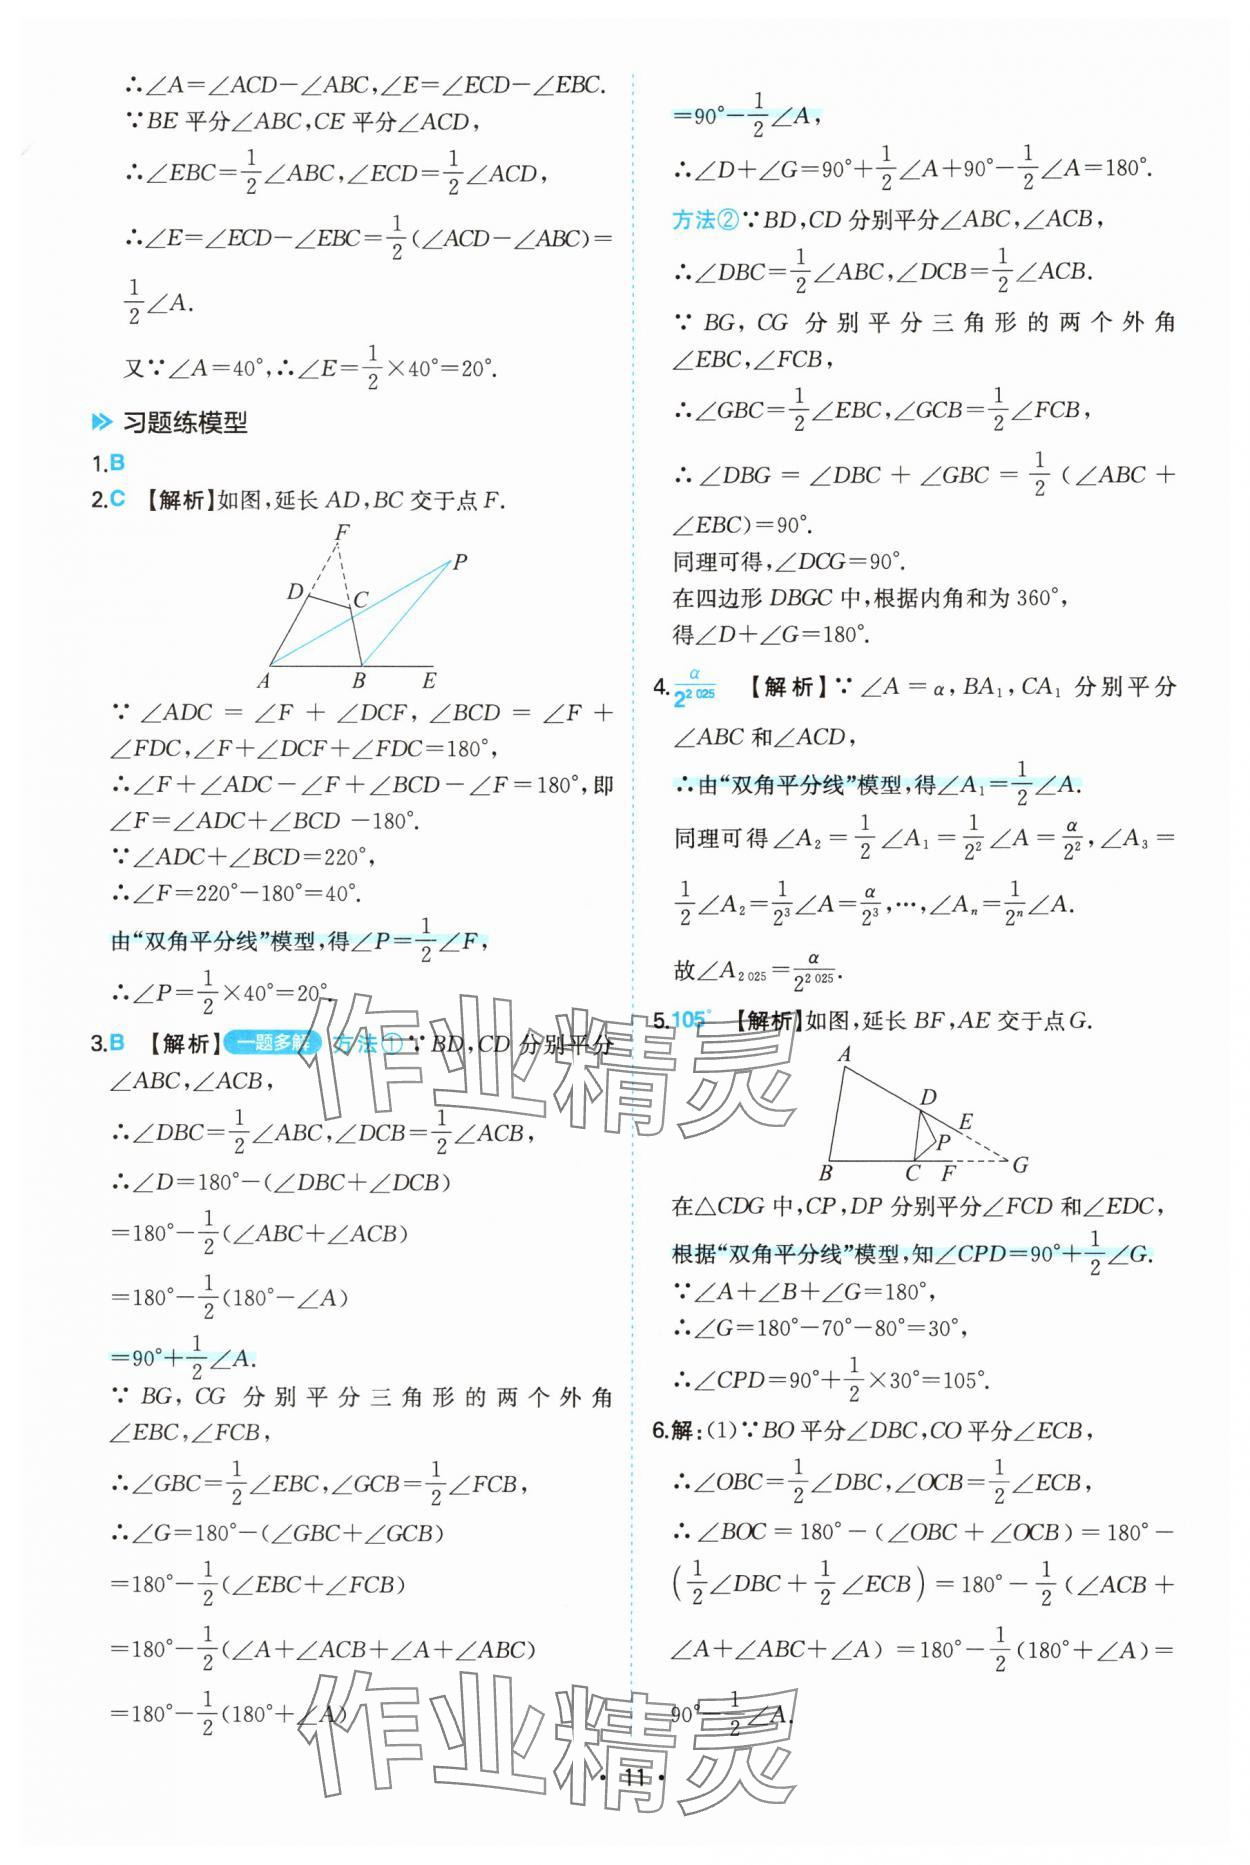 ∴∠A=∠ACD-∠ABC,∠E=∠ECD-∠EBC.
∵BE 平分∠ABC,CE 平分∠ACD,
∴∠EBC=1/2∠ABC,∠ECD=1/2∠ACD,
∴∠E=∠ECD-∠EBC=1/2(∠ACD-∠ABC)=
1/2∠A.
又∵∠A=40°,∴∠E=1/2×40°=20°.
习题练模型
1.B
2.C 【解析】如图,延长 AD,BC 交于点 F.
F
P
D
C
A B E
∵∠ADC=∠F+∠DCF,∠BCD=∠F+
∠FDC,∠F+∠DCF+∠FDC=180°,
∴∠F+∠ADC-∠F+∠BCD-∠F=180°,即
∠F=∠ADC+∠BCD-180°.
∵∠ADC+∠BCD=220°,
∴∠F=220°-180°=40°.
由“双角平分线”模型,得∠P=1/2∠F,
∴∠P=1/2×40°=20°.
3.B 【解析】 一题多解 方法①∵BD,CD 分别平分
∠ABC,∠ACB,
∴∠DBC=1/2∠ABC,∠DCB=1/2∠ACB,
∴∠D=180°-(∠DBC+∠DCB)
=180°-1/2(∠ABC+∠ACB)
=180°-1/2(180°-∠A)
=90°+1/2∠A.
∵ BG, CG 分别平分三角形的两个外角
∠EBC,∠FCB,
∴∠GBC=1/2∠EBC,∠GCB=1/2∠FCB,
∴∠G=180°-(∠GBC+∠GCB)
=180°-1/2(∠EBC+∠FCB)
=180°-1/2(∠A+∠ACB+∠A+∠ABC)
=180°-1/2(180°+∠A)
=90°-1/2∠A,
∴∠D+∠G=90°+1/2∠A+90°-1/2∠A=180°.
方法②∵BD,CD 分别平分∠ABC,∠ACB,
∴∠DBC=1/2∠ABC,∠DCB=1/2∠ACB.
∵ BG, CG 分别平分三角形的两个外角
∠EBC,∠FCB,
∴∠GBC=1/2∠EBC,∠GCB=1/2∠FCB,
∴∠DBG=∠DBC+∠GBC=1/2(∠ABC+
∠EBC)=90°.
同理可得,∠DCG=90°.
在四边形 DBGC 中,根据内角和为 360°,
得∠D+∠G=180°.
4.α/2^2 025 【解析】∵∠A=α,BA₁,CA₁ 分别平分
∠ABC 和∠ACD,
∴由“双角平分线”模型,得∠A₁=1/2∠A.
同理可得∠A₂=1/2∠A₁=1/2²∠A=α/2²,∠A₃=
1/2∠A₂=1/2³∠A=α/2³,…,∠Aₙ=1/2ⁿ∠A.
故∠A₂ ₀₂₅=α/2^2 025.
5.105° 【解析】如图,延长 BF,AE 交于点G.
A
D
E
P
B C F G
在△CDG 中,CP,DP 分别平分∠FCD 和∠EDC,
根据“双角平分线”模型,知∠CPD=90°+1/2∠G.
∵∠A+∠B+∠G=180°,
∴∠G=180°-70°-80°=30°,
∴∠CPD=90°+1/2×30°=105°.
6.解:(1)∵BO 平分∠DBC,CO 平分∠ECB,
∴∠OBC=1/2∠DBC,∠OCB=1/2∠ECB,
∴∠BOC=180°-(∠OBC+∠OCB)=180°-
(1/2∠DBC+1/2∠ECB)=180°-1/2(∠ACB+
∠A+∠ABC+∠A)=180°-1/2(180°+∠A)=
90°-1/2∠A.
作业精灵
作业精灵
· 11 ·